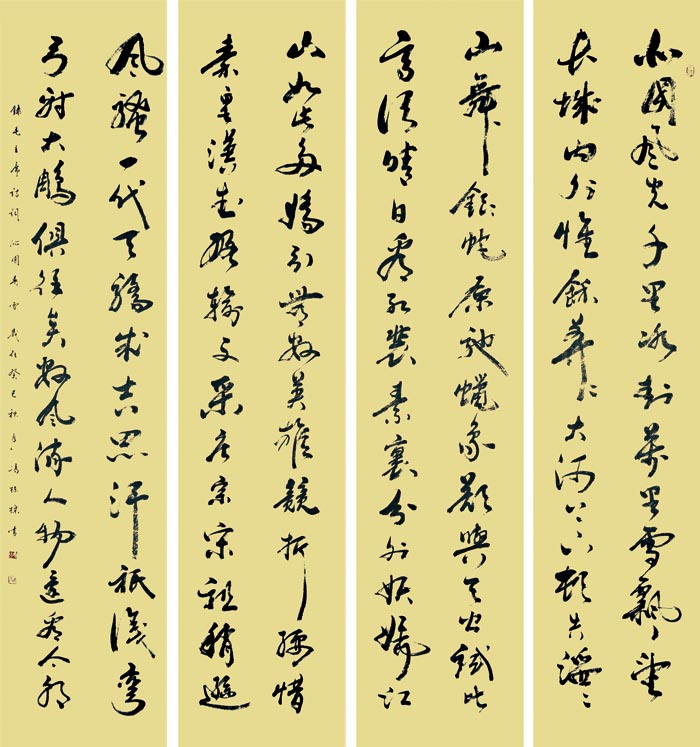 北國風光千里冰封萬里雪飄望
長城內外惟餘莽〻大河上下頓失滔〻
山舞銀蛇原馳蠟象欲與天公試比
高須晴日看紅裝素裹分外妖嬈江
山如此多嬌引無數英雄競折腰惜
秦皇漢武略輸文采唐宗宋祖稍遜
風騷一代天驕成吉思汗祇識彎
弓射大鵰俱往矣數風流人物還看今朝
錄毛主席詩詞沁園春雪歲在癸巳秋月馮書